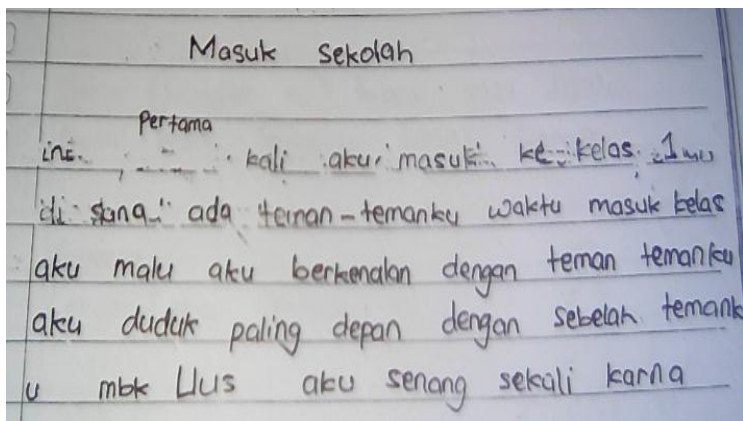 Masuk sekolah
Pertama
ini kali aku masuk ke kelas 1
di sana ada teman-temanku waktu masuk kelas
aku malu aku berkenalan dengan teman temanku
aku duduk paling depan dengan sebelah temank
u mbk LUs aku senang sekali karna